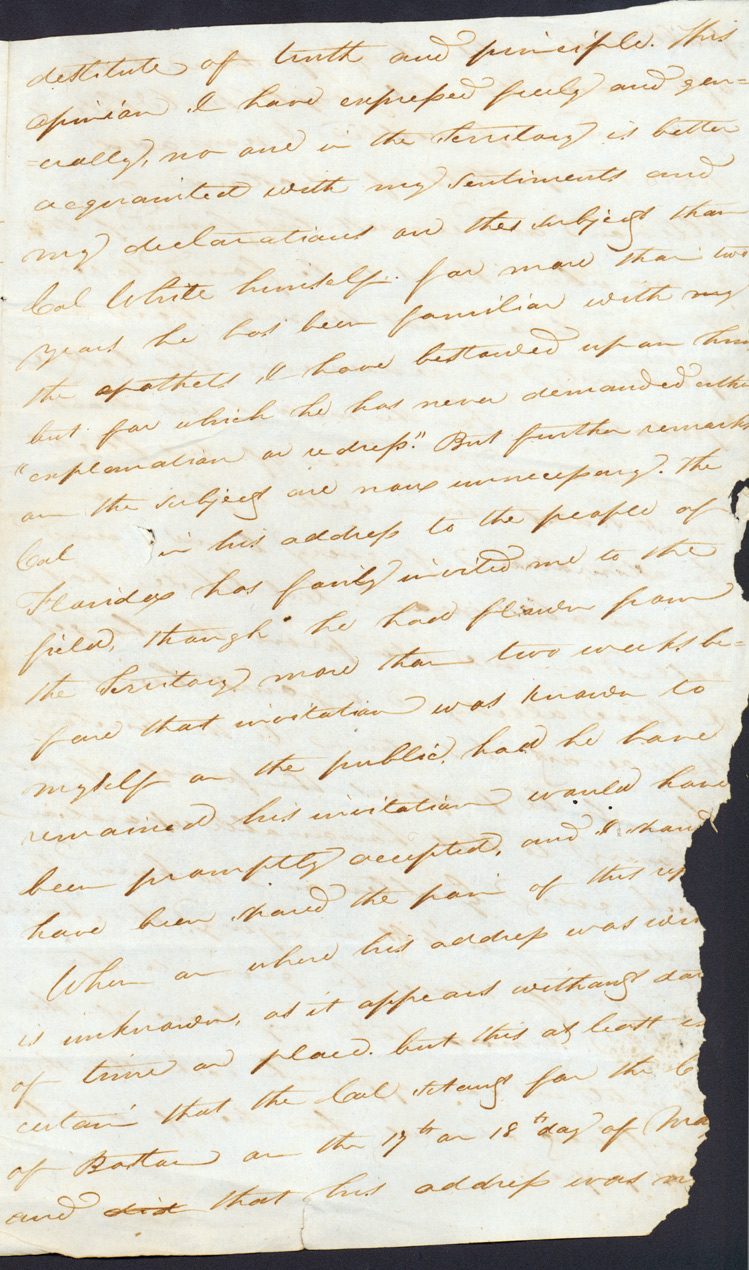 destitute of truth and principle. This
opinion I have expressed freely and gen=
=erally, no one in the Territory is better
acquainted with my sentiments and
my declarations on this subject than
Col White himself. for more than two
years he has been familiar with my
the epothets I have bestowed upon him
but for which he has never demanded
"explanation or redress." But further remarks
on the subject are now unnecessary. The
Col in his address to the people of
Florida has fairly invited me to the
field, though he had flown from
the Territory more than two weeks be=
fore that invitation was known to
myself or the public. had he have
remained his invitation would have
been promptly accepted, and I should
have been spared the pain of this
When or where his address was
is unknown, as it appears without
of time or place. but this at least
certain that the Col for the
of Boston on the 17th or 18th day of
and did that his address was